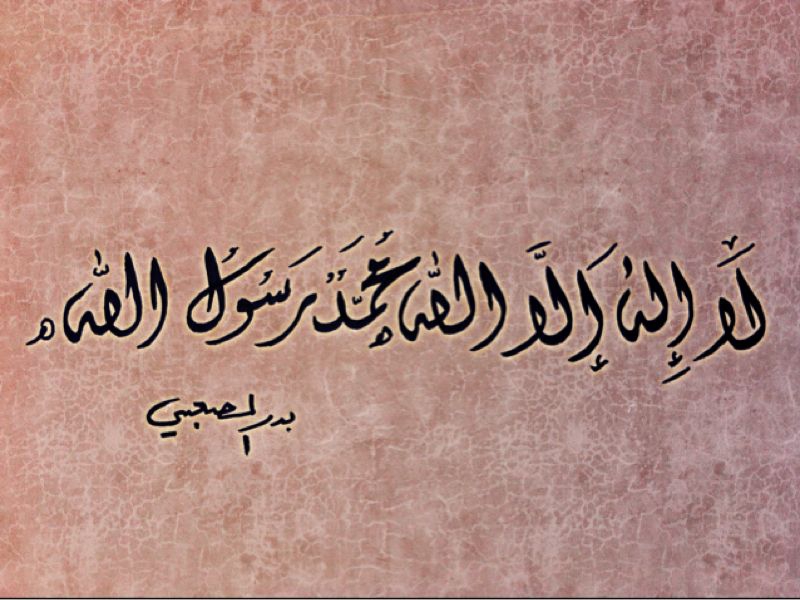 لَا إِلهَ إِلَّا الله مُحَمَّدٌ رَسُوْلُ الله
بدر